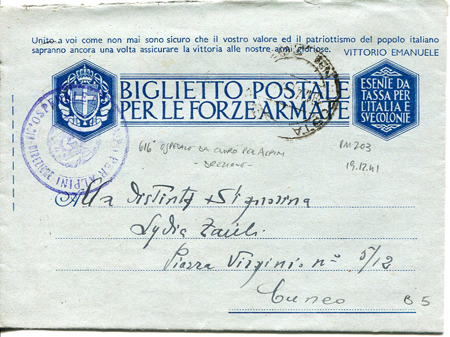 Unito a voi come non mai sono sicuro che il vostro valore ed il patriottismo del popolo italiano
sapranno ancora una volta assicurare la vittoria alle nostre armi gloriose. VITTORIO EMANUELE
BIGLIETTO POSTALE
PER LE FORZE ARMATE
ESENTE DA
TASSA PER
L'ITALIA E
SVE COLONIE
616° OSPEDALE DA CAMPO PER ALPINI
- DIREZIONE -
PM 203
19.12.41
PER ALPINI
DIREZIONE
Alla Distinta Signorina
Lydia Zauli
Piazza Virginio n° 5/12
Cuneo
B 5